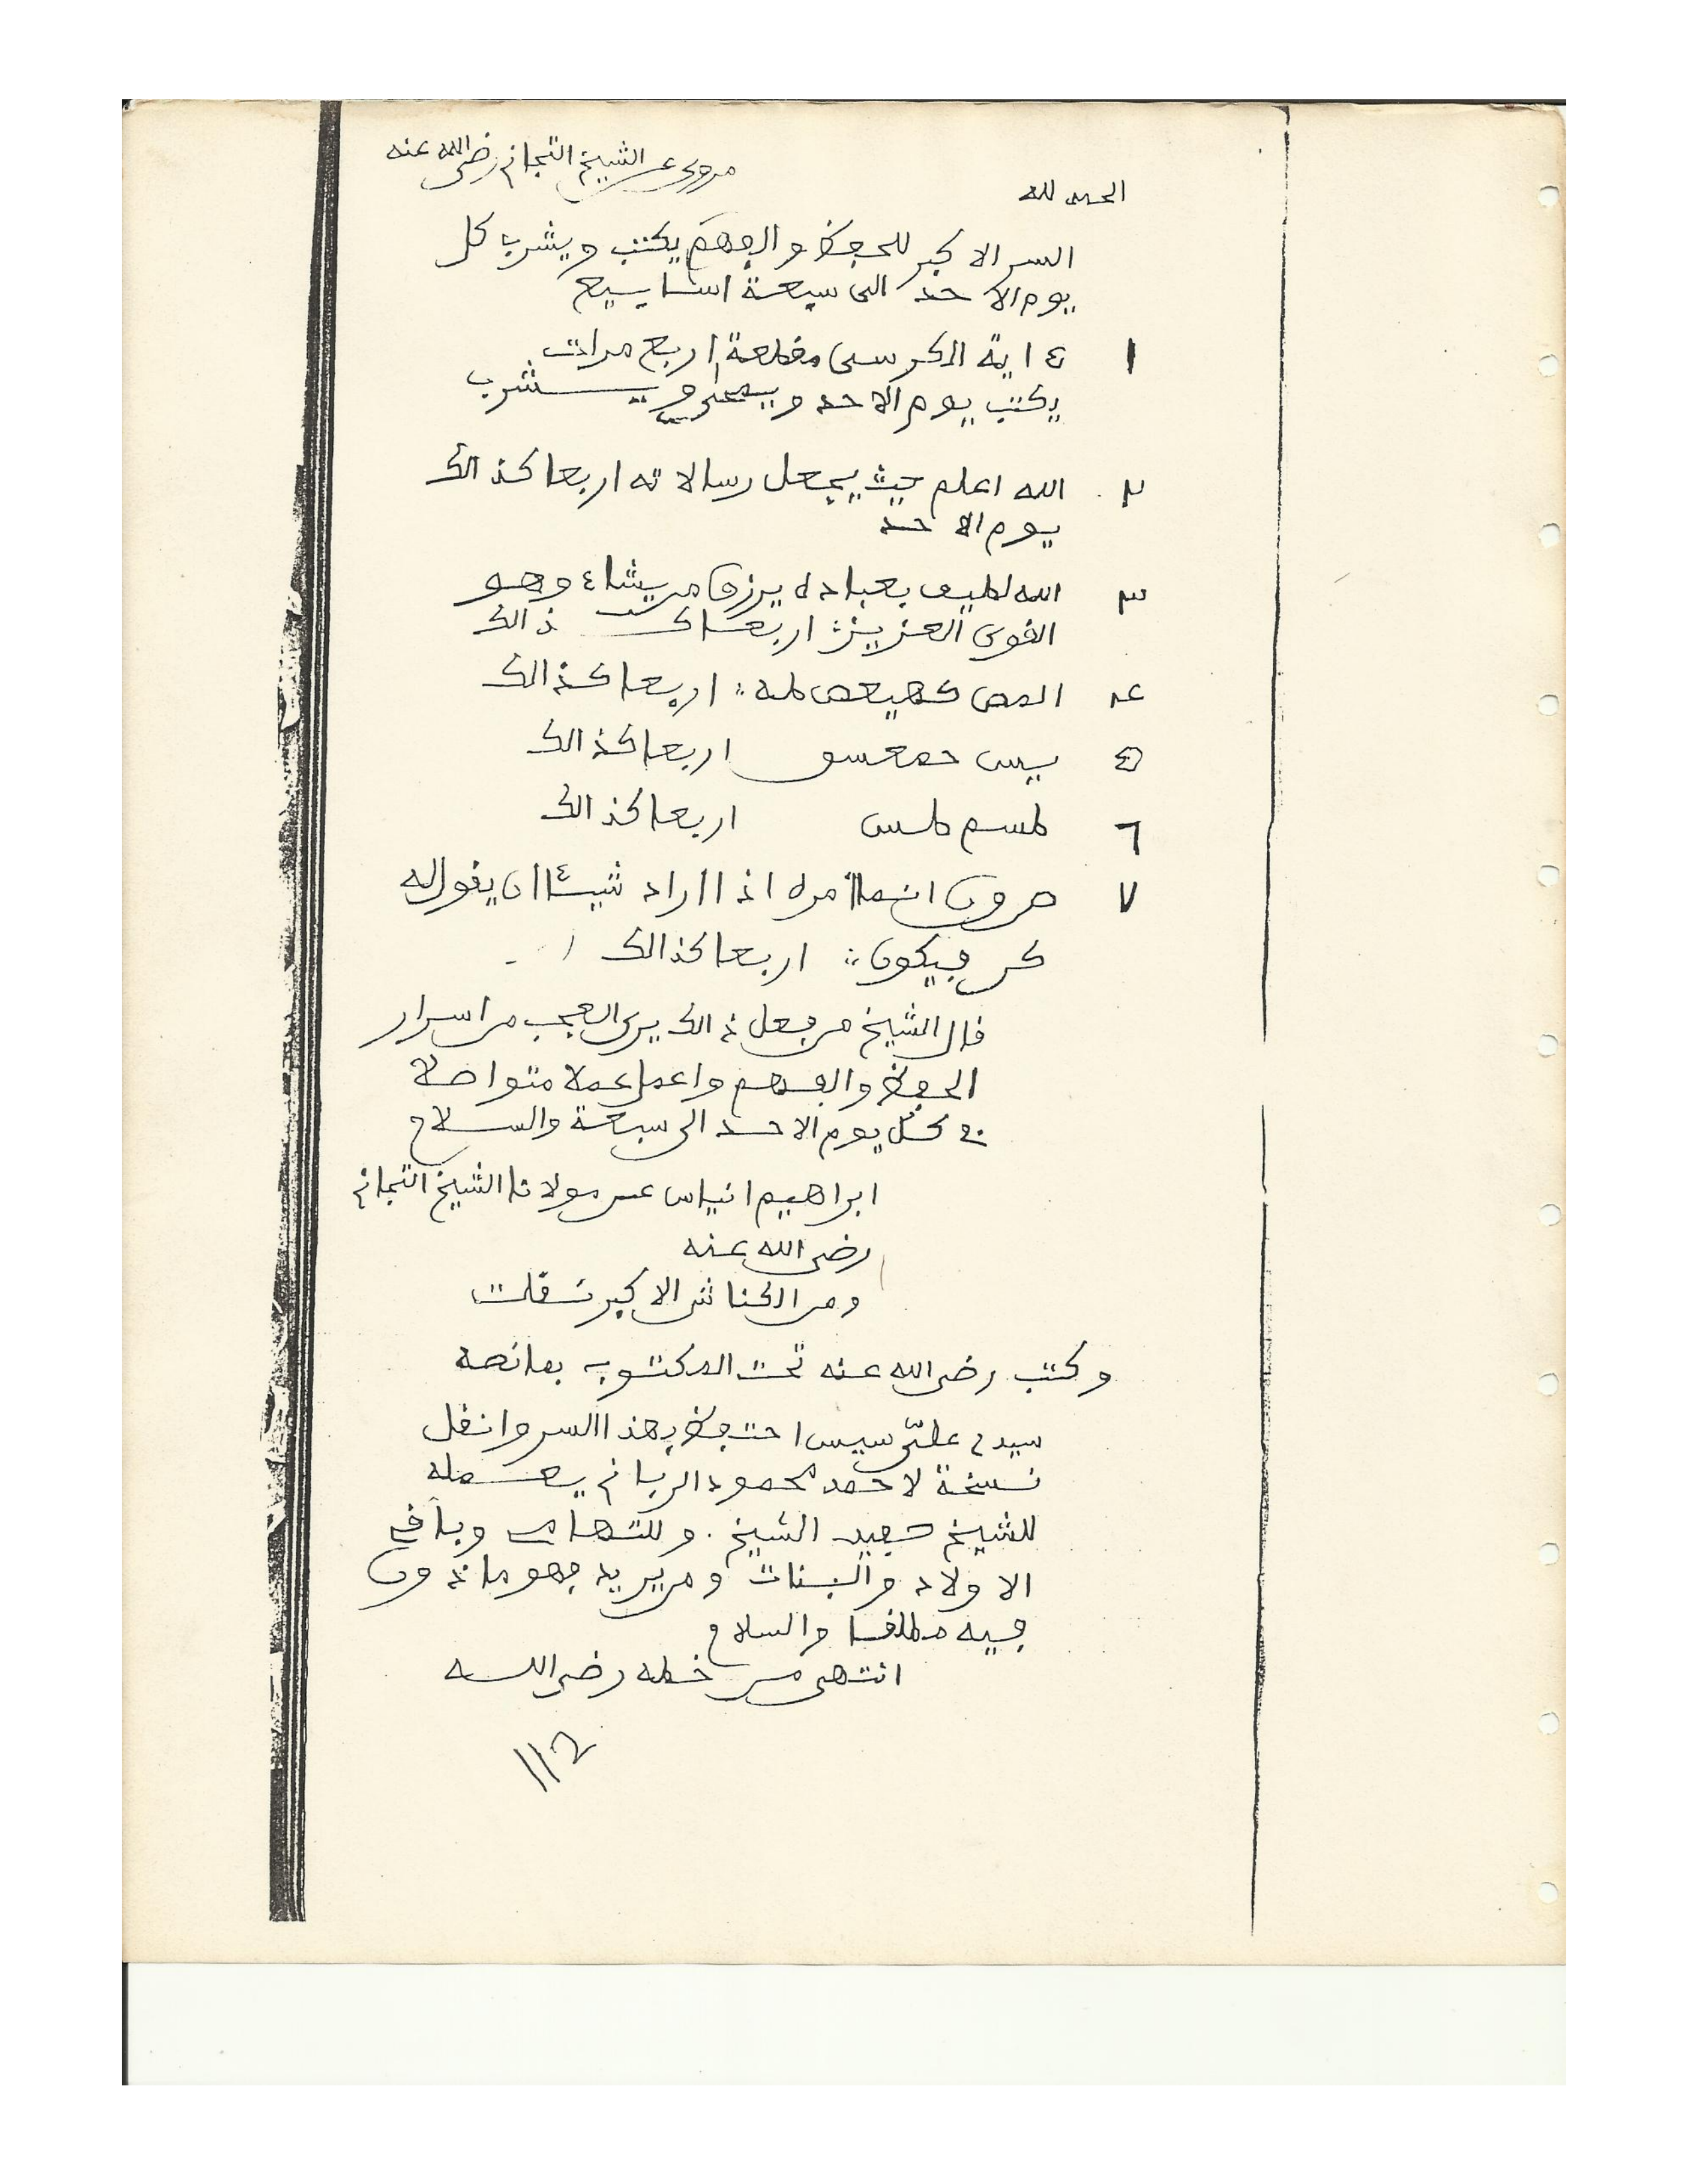 مروي عن الشيخ التجاني رضي الله عنه
الحمد لله
السر الاكبر للحفظ والفهم يكتب ويشرب كل
يوم الاحد الى سبعة اسابيع
١ ءاية الكرسى مقطعة اربع مرات
يكتب يوم الاحد ويمحى ويشرب
٢ الله اعلم حيث يجعل رسالاته اربعا كذالك
يوم الاحد
٣ الله لطيف بعباده يرزق من يشاء وهو
القوى العزيز اربعا كذالك
٤ المص كهيعص طه اربعا كذالك
٥ يس حمعسق اربعا كذالك
٦ طسم طس اربعا كذالك
٧ ص ق ن انما أمره اذا اراد شيئا ان يقول له
كن فيكون اربعا كذالك
قال الشيخ من فعل ذالك يرى العجب من اسرار
الحفظ والفهم واعمل عملا متواصلا
فى كل يوم الاحد الى سبعة والسلام
ابراهيم انياس عن مولانا الشيخ التجاني
رضى الله عنه
ومن الكناش الاكبر نقلت
وكتب رضى الله عنه تحت المكتوب بما نصه
سيدي علي سيس احتفظ بهذا السر وانقل
نسخة لاحمد محمود الرباني يعمله
للشيخ حفيد الشيخ. وللتهامى وباقي
الاولاد والبنات ومن يريد فهو ماذون
فيه مطلقا والسلام
انتهى من خطه رضى الله
112